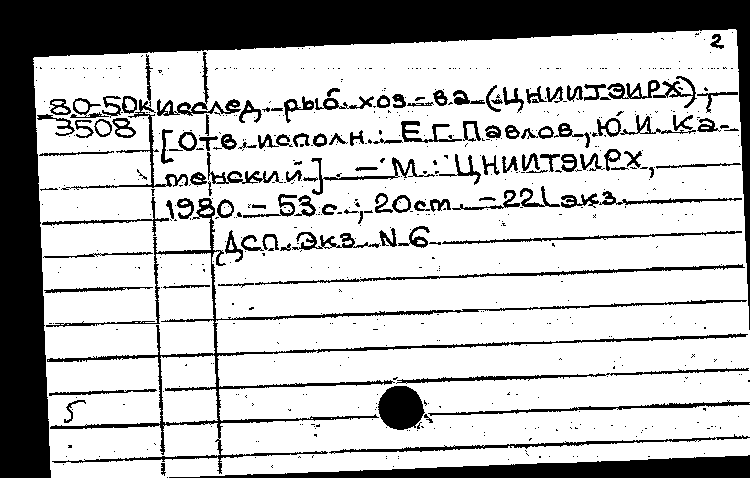 2
80-50к исслед. рыб. хоз-ва (ЦНИИТЭИРХ);
3508 [Отв. исполн.: Е.Г. Павлов, Ю.И. Ка-
менский]. - М.: ЦНИИТЭИРХ,
1980. - 53 с.; 20 см. - 221 экз.
ДСП. Экз. N 6
5